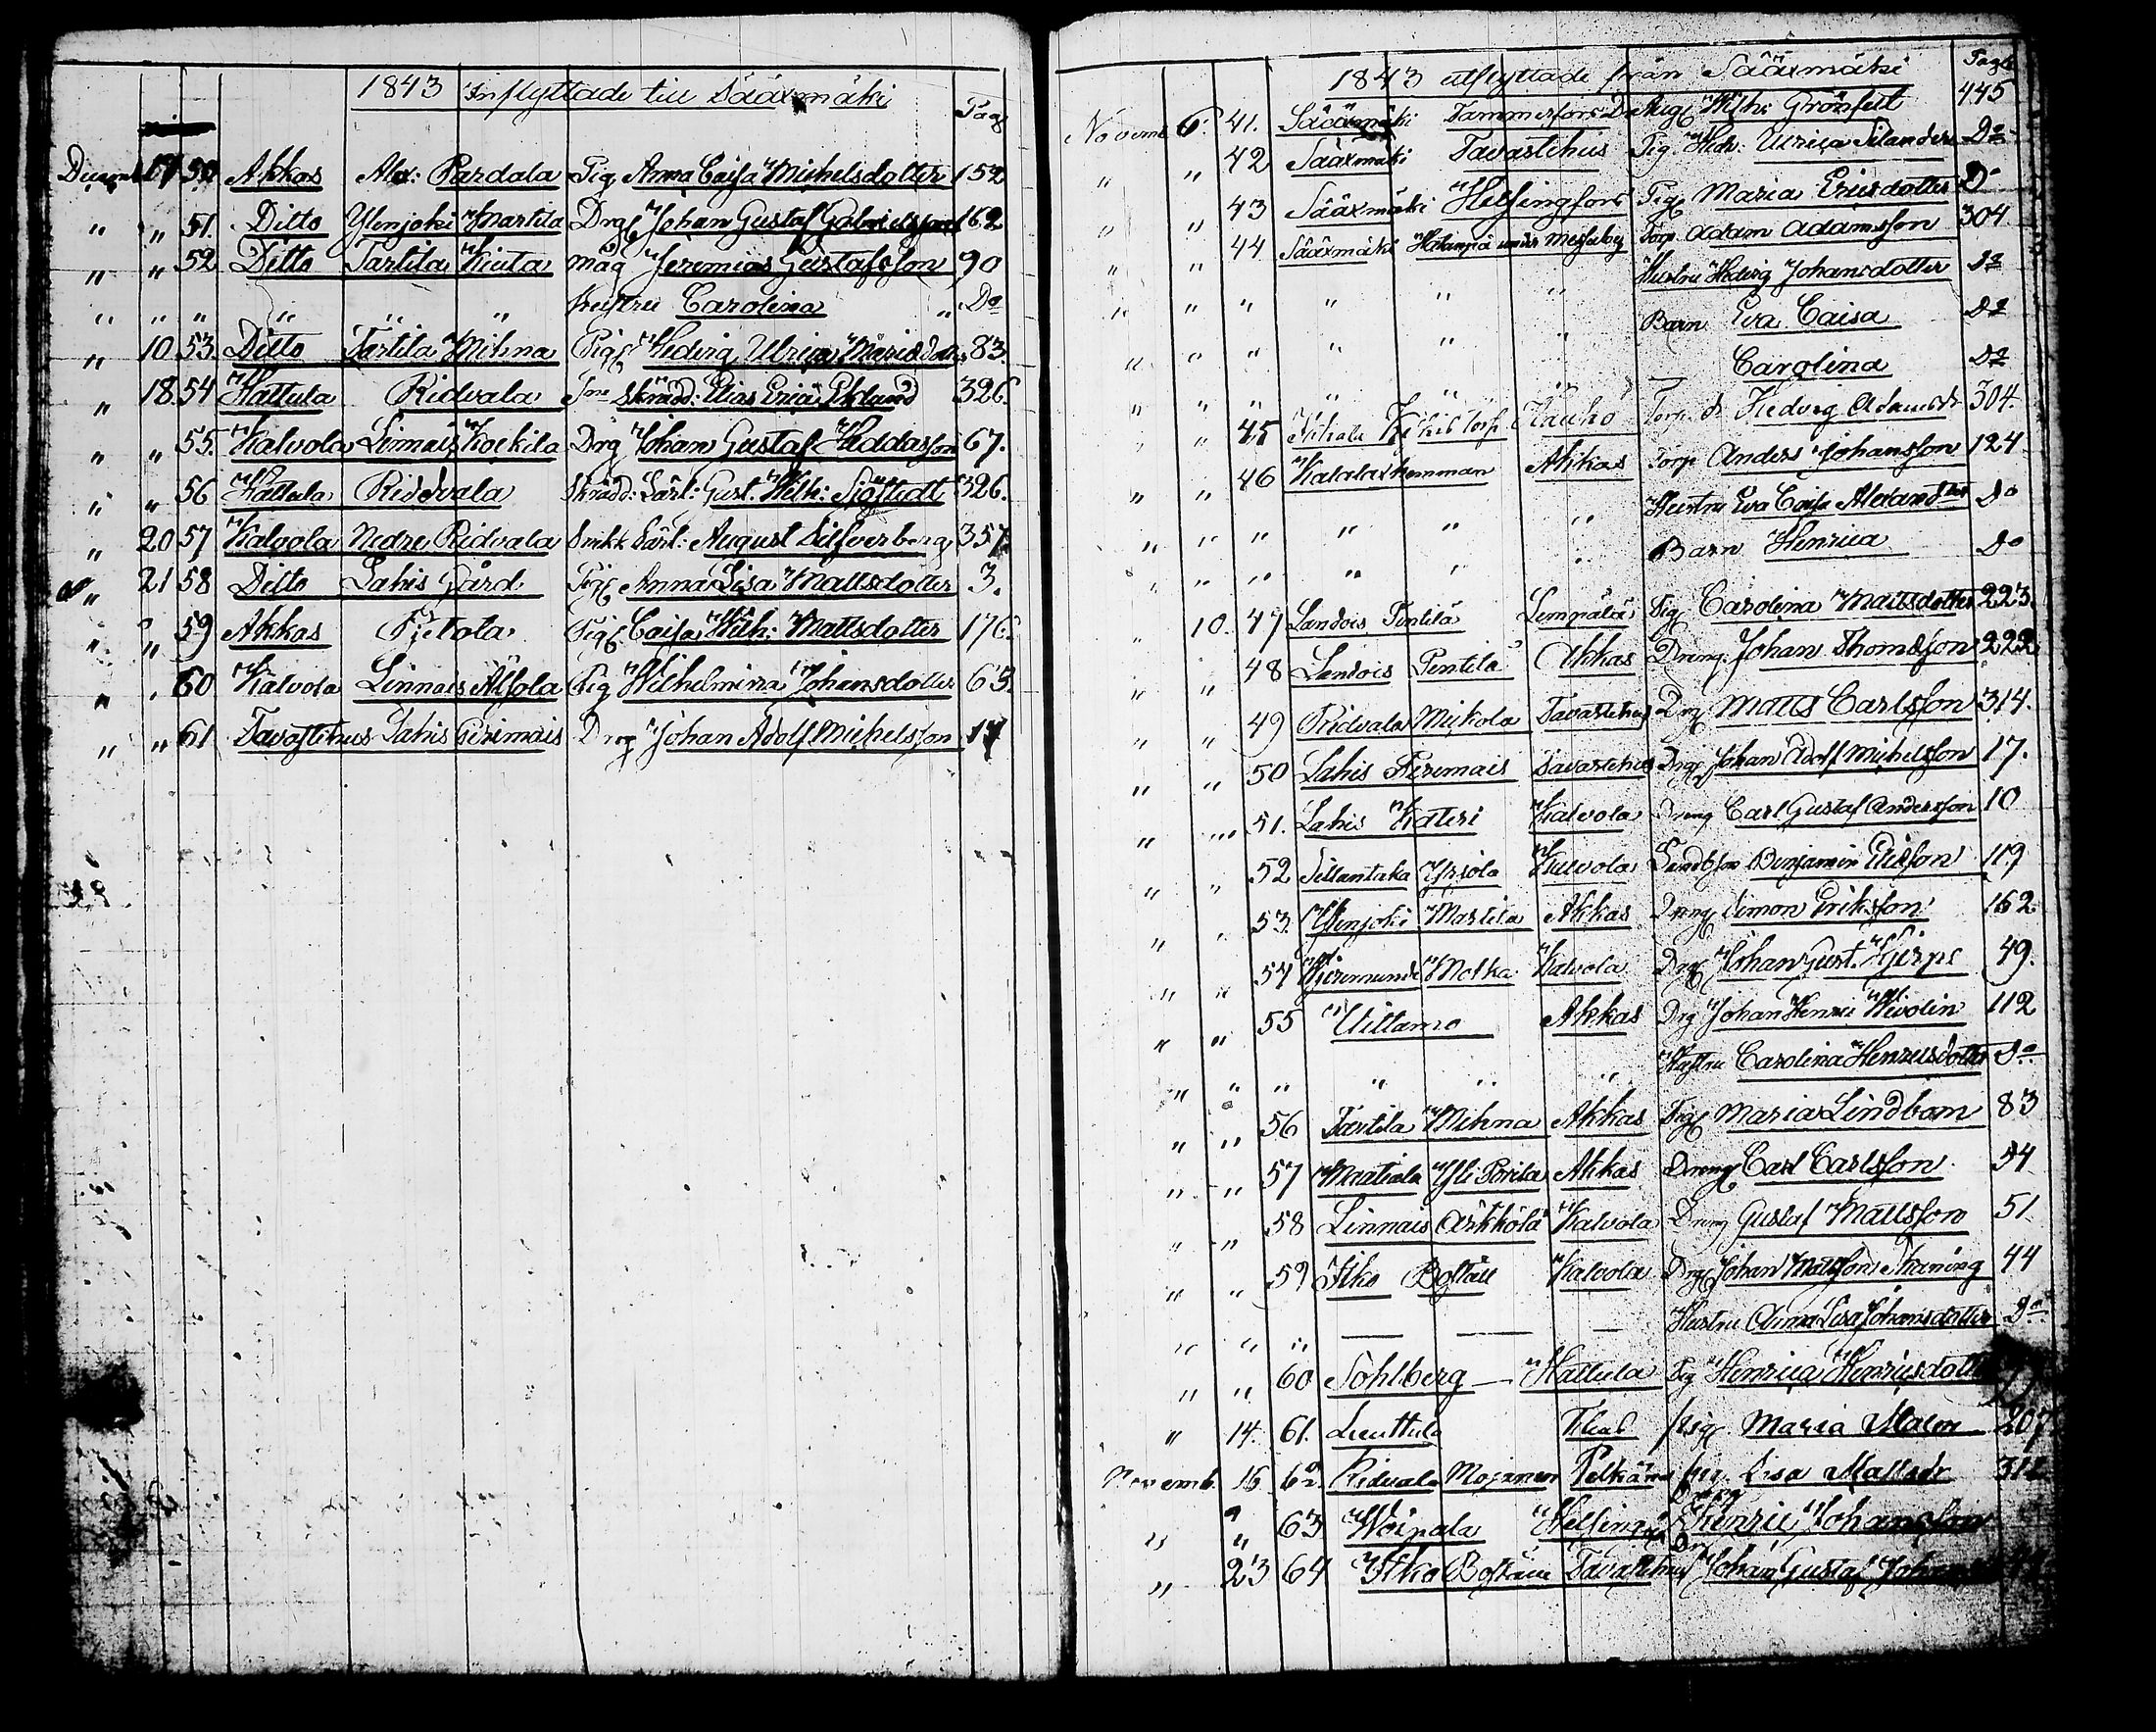 1843 Inflyttade till Sääxmäki Pag
Decemb 17 50 Akkas Ala: Pardala Pig Anna Caisa Michelsdotter 152
" " 51. Ditto Ylenjoki Martila Drg Johan Gustaf Gabrielsson 162
" " 52 Ditto Tartila Kiuta Måg Jeremias Gustafsson 90
" " " " " " Hustru Carolina " Do
" 10. 53. Ditto Tartila Mihna Pig Hedvig Ulrica 83.
" 18. 54 Hattula Ridvala Skrädd: Elias Eklund 326.
" " 55. Kalvola Linnais Kockila Drg Johan Gustaf Heddasson 67.
" " 56 Hattula Ridvala Skrädd: Lärl: Gust. Wilh: Sjöstedt 326.
" 20 57 Kalvola Nedre Ridvala Snikk Lärl: August Silfverberg 357
" 21 58 Ditto Lahis Gård Pig Anna Lisa Mattsdotter 3.
" " 59 Akkas Pietola Pig Caisa Wilh: Mattsdotter 176.
" " 60 Kalvola Linnais Alsola Pig Wilhelmina Johansdotter 63.
" " 61 Tavastehus Lahis Pirimais Drg Johan Adolf Michelsson 17
1843 utflyttade från Sääxmäki Pag
Novemb 6. 41. Sääxmäki Tammerfors Aug Wilh: Grönfelt 445
" " 42 Sääxmäki Tavastehus Pig Hedv: Ulrica Silander Do
" " 43 Sääxmäki Helsingfors Pig Maria Ericsdotter Do
" " 44 Sääxmäki under Messuby Torp. Adam Adamsson 304
" " " " " " Hustru Hedvig Johansdotter Do
" " " " " " Barn Eva Caisa Do
" " " " " Carolina Do
" " 45 Torp. Kauho Torp. dr Hedvig Adamsdr 304.
" " 46 hemman Akkas Torp Anders Johansson 124
" " " " " " Hustru Eva Caisa Alexand dtr Do
" " " " " " Barn Henrica Do
" 10. 47 Landois Pentilä Lempälä Pig Carolina Mattsdotter 223.
" " 48 Landois Pentilä Akkas Dreng. Johan Thomasson 222
" " 49 Ridvala Mickola Tavastehus Drg Matts Carlsson 314.
" " 50 Lahis Pirimais Tavastehus Drg Johan Adolf Michelsson 17.
" " 51. Lahis Kateri Kalvola Dreng Carl Gustaf Andersson 10
" " 52 Sillantaka Yrjola Kalvola Benjamin Elisson 119
" " 53. Ylenjoki Martila Akkas Dreng Simon Eriksson 162
" " 54 Hjeremunde Motka Kalvola Drg Johan Gust. Hjerpe 49.
" " 55 Uittamo Akkas Drg Johan Henric Wivolin 112
" " " " " " Hustru Carolina Henricsdotter Do
" " 56 Tartila Mihna Akkas Pig Maria Lindbom 83
" " 57 Maatiala Yli Porila Akkas Dreng Carl Carlsson 54
" " 58 Linnais Arkkola Kalvola Dreng Gustaf Mattsson 51
" " 59 Itko Boställ Kalvola Drg Johan Mattsson 44
" " " — — — Hustru Anna Lisa Johansdotter Do
" " 60 Sohlberg — Hattula Pig Henrica Henricsdotter
" 14. 61. Luuttula pig Maria Malm 207
Novemb. 16. 62. Ridvala Mojanen Pelkäne pig. Lisa Mattsdr 312
" " 63 Woipala Helsing Dreng Henric Johansson
" 23 64 Itko Boställe Tavastehus Drg Johan Gustaf